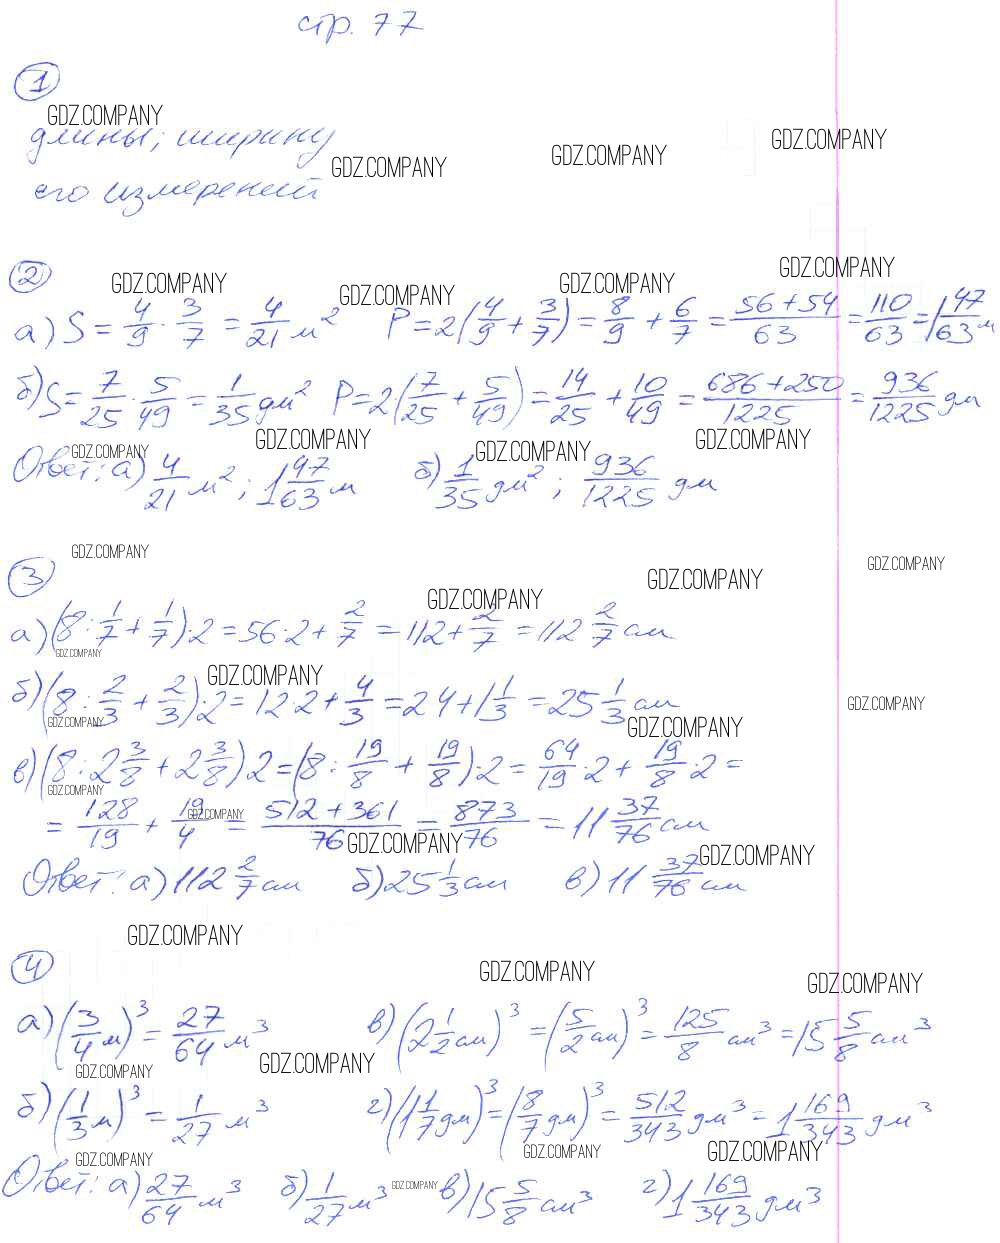 стр. 77
1
GDZ.COMPANY
длины; ширину
GDZ.COMPANY GDZ.COMPANY GDZ.COMPANY
его измерений
2
GDZ.COMPANY GDZ.COMPANY GDZ.COMPANY GDZ.COMPANY
а) S = 4/9 · 3/7 = 4/21 м² P = 2(4/9 + 3/7) = 8/9 + 6/7 = (56+54)/63 = 110/63 = 1 47/63 м
б) S = 7/25 · 5/49 = 1/35 дм² P = 2(7/25 + 5/49) = 14/25 + 10/49 = (686+250)/1225 = 936/1225 дм
GDZ.COMPANY GDZ.COMPANY GDZ.COMPANY GDZ.COMPANY
Ответ: а) 4/21 м²; 1 47/63 м б) 1/35 дм²; 936/1225 дм
GDZ.COMPANY GDZ.COMPANY GDZ.COMPANY
3
GDZ.COMPANY
а) (8 : 1/7 + 1/7)·2 = 56·2 + 2/7 = 112 + 2/7 = 112 2/7 см
GDZ.COMPANY GDZ.COMPANY
б) (8 : 2/3 + 2/3)·2 = 12·2 + 4/3 = 24 + 1 1/3 = 25 1/3 см
GDZ.COMPANY GDZ.COMPANY GDZ.COMPANY
в) (8 : 2 3/8 + 2 3/8)·2 = (8 : 19/8 + 19/8)·2 = 64/19 · 2 + 19/8 · 2 =
GDZ.COMPANY GDZ.COMPANY
= 128/19 + 19/4 = (512+361)/76 = 873/76 = 11 37/76 см
GDZ.COMPANY GDZ.COMPANY
Ответ: а) 112 2/7 см б) 25 1/3 см в) 11 37/76 см
GDZ.COMPANY
4
GDZ.COMPANY GDZ.COMPANY
а) (3/4 м)³ = 27/64 м³ в) (2 1/2 см)³ = (5/2 см)³ = 125/8 см³ = 15 5/8 см³
GDZ.COMPANY GDZ.COMPANY
б) (1/3 м)³ = 1/27 м³ г) (1 1/7 дм)³ = (8/7 дм)³ = 512/343 дм³ = 1 169/343 дм³
GDZ.COMPANY GDZ.COMPANY GDZ.COMPANY
Ответ: а) 27/64 м³ б) 1/27 м³ GDZ.COMPANY в) 15 5/8 см³ г) 1 169/343 дм³